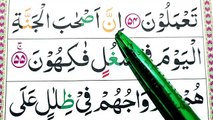 تَعْمَلُوْنَ ﴿۵۴﴾ اِنَّ اَصْحٰبَ الْجَنَّةِ
الْيَوْمَ فِيْ شُغُلٍ فٰكِهُوْنَ ﴿۵۵﴾
هُمْ وَاَزْوَاجُهُمْ فِيْ ظِلٰلٍ عَلَى